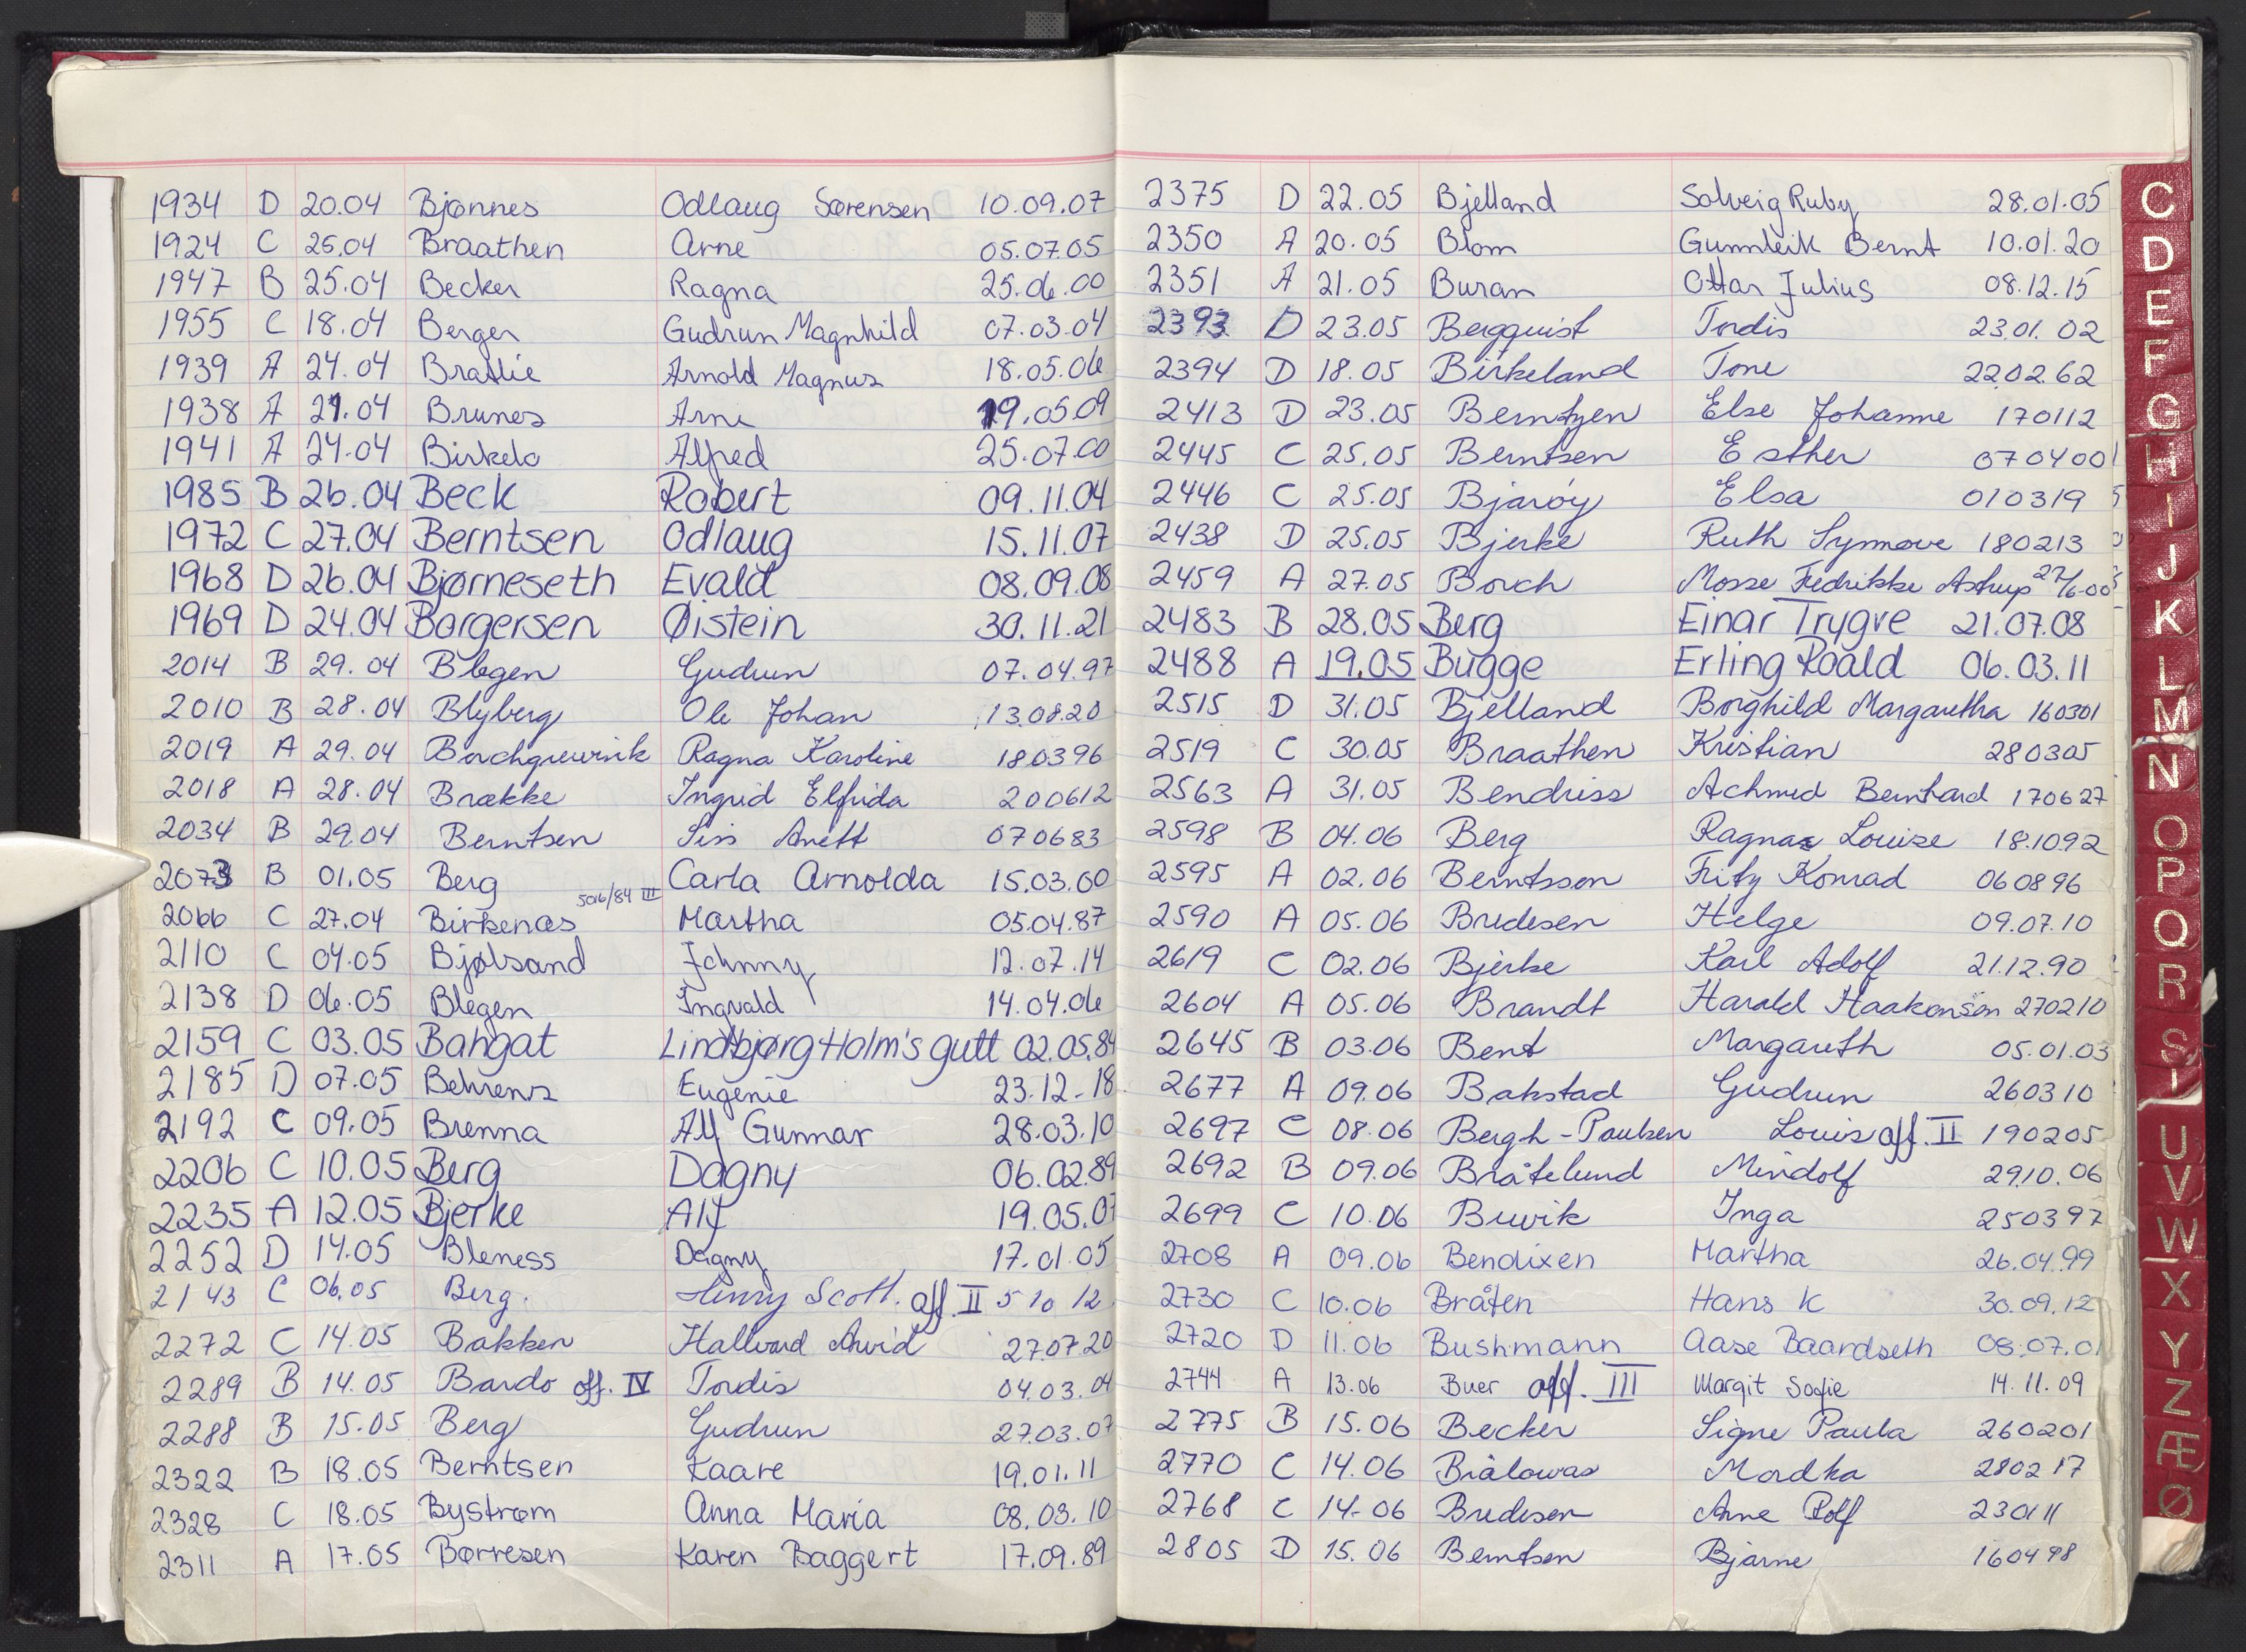 1934 D 20.04 Bjønnes Odlaug Sørensen 10.09.07
1924 C 25.04 Braathen Arne 05.07.05
1947 B 25.04 Becker Ragna 25.06.00
1955 C 18.04 Berger Gudrun Magnhild 07.03.04
1939 A 24.04 Bratlie Arnold Magnus 18.05.06
1938 A 21.04 Brunes Arne 19.05.09
1941 A 24.04 Birkelo Alfred 25.07.00
1985 B 26.04 Beck Robert 09.11.04
1972 C 27.04 Berntsen Odlaug 15.11.07
1968 D 26.04 Bjørneseth Evald 08.09.08
1969 D 24.04 Borgersen Øistein 30.11.21
2014 B 29.04 Blegen Gudrun 07.04.97
2010 B 28.04 Blyberg Ole Johan 13.08.20
2019 A 29.04 Borchgrewink Ragna Karoline 180396
2018 A 28.04 Brække Ingrid Elfrida 200612
2034 B 29.04 Berntsen Siss Anett 070683
2073 B 01.05 Berg Carla Arnolda 15.03.00
5016/84 III
2066 C 27.04 Birkenæs Martha 05.04.87
2110 C 04.05 Bjølsand Johnny 12.07.14
2138 D 06.05 Blegen Ingvald 14.04.06
2159 C 03.05 Bahgat Lindbjørg Holm's gutt 02.05.84
2185 D 07.05 Behrens Eugenie 23.12-18
2192 C 09.05 Brenna Alf Gunnar 28.03.10
2206 C 10.05 Berg Dagny 06.02.89
2235 A 12.05 Bjerke Alf 19.05.07
2252 D 14.05 Bleness Dagny 17.01.05
2143 C 06.05 Berg. Henry Scott. aff. II 5 10 12
2272 C 14.05 Bakken Hallvard Arvid 27.07.20
2289 B 14.05 Bardo off. IV Tordis 04.03.04
2288 B 15.05 Berg Gudrun 27.03.07
2322 B 18.05 Berntsen Kaare 19.01.11
2328 C 18.05 Bystrøm Anna Maria 08.03.10
2311 A 17.05 Børresen Karen Baggert 17.09.89
2375 D 22.05 Bjelland Solveig Ruby 28.01.05
2350 A 20.05 Blom Gunnleik Bernt 10.01.20
2351 A 21.05 Buran Ottar Julius 08.12.15
2393 D 23.05 Bergquist Tordis 23.01.02
2394 D 18.05 Birkeland Tone 22.02.62
2413 D 23.05 Berntzen Else Johanne 170112
2445 C 25.05 Berntsen Esther 070400
2446 C 25.05 Bjarøy Elsa 010319
2438 D 25.05 Bjerke Ruth Synnøve 180213
2459 A 27.05 Borch Mosse Fredrikke Astrup 27/6-00
2483 B 28.05 Berg Einar Trygve 21.07.08
2488 A 19.05 Bugge Erling Roald 06.03.11
2515 D 31.05 Bjelland Borghild Margaretha 160301
2519 C 30.05 Braathen Kristian 280305
2563 A 31.05 Bendriss Achmed Bernhard 170627
2598 B 04.06 Berg Ragna Louise 18.10.92
2595 A 02.06 Berntsson Fritz Konrad 060896
2590 A 05.06 Bredesen Helge 09.07.10
2619 C 02.06 Bjerke Karl Adolf 21.12.90
2604 A 05.06 Brandt Harald Haakonson 270210
2645 B 03.06 Bent Margareth 05.01.03
2677 A 09.06 Bakstad Gudrun 260310
2697 C 08.06 Bergh-Paulsen Louis aff. II 190205
2692 B 09.06 Bråtelund Mindolf 29.10.06
2699 C 10.06 Buvik Inga 250397
2708 A 09.06 Bendixen Martha 26.04.99
2730 C 10.06 Bråten Hans K 30.09.12
2720 D 11.06 Bushmann Aase Baardseth 08.07.01
2744 A 13.06 Buer aff. III Margit Sofie 14.11.09
2775 B 15.06 Becker Signe Paula 260201
2770 C 14.06 Bialowas Mordka 280217
2768 C 14-06 Bredesen Arne Rolf 230111
2805 D 15.06 Berntsen Bjarne 160498
C
D
E
F
G
H
I
J
K
L
M
N
O
P
Q
R
S
U
V
W
X
Y
Z
Æ
Ø